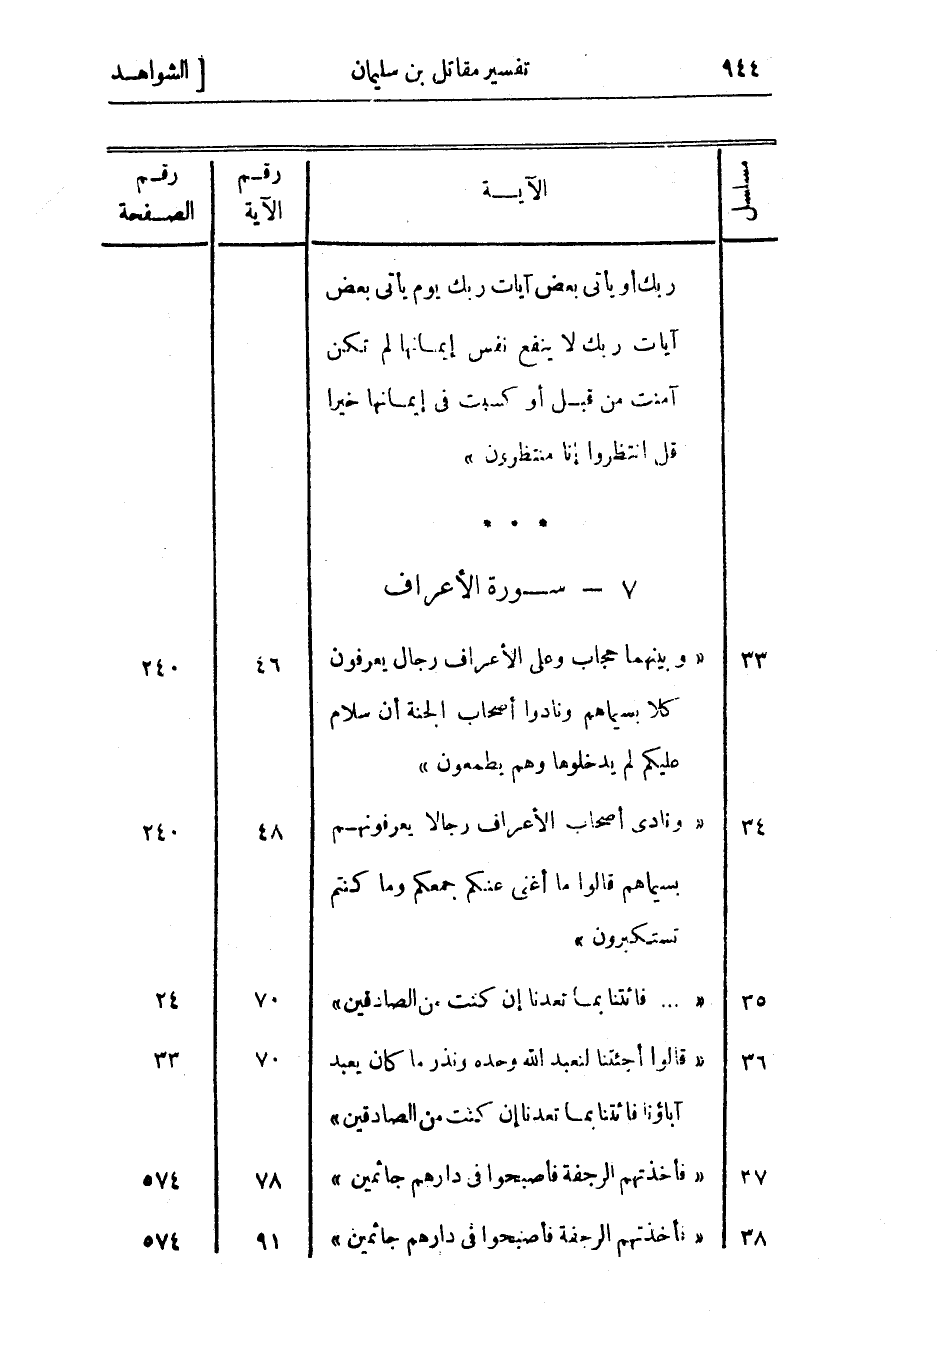 ٩٤٤ تفسير مقاتل بن سليمان [ الشواهــد
مسلسل الآيـــة رقـم الآية رقـم الصـفحة
ربك أو يأتى بعض آيات ربك يوم يأتى بعض
آيات ربك لا ينفع نفس إيمـانها لم تكن
آمنت من قبـل أو كسبت فى إيمـانها خيرا
قل انتظروا إنا منتظرون »
* * *
٧ — ســورة الأعراف
٣٣ « وبينهما حجاب وعلى الأعراف رجال يعرفون ٤٦ ٢٤٠
كلا بسيماهم ونادوا أصحاب الجنة أن سلام
عليكم لم يدخلوها وهم يطمعون »
٣٤ « ونادى أصحاب الأعراف رجالا يعرفونهـم ٤٨ ٢٤٠
بسيماهم قالوا ما أغنى عنكم جمعكم وما كنتم
تستكبرون »
٣٥ « ... فائتنا بمـا تعدنا إن كنت من الصادقين » ٧٠ ٢٤
٣٦ « قالوا أجئتنا لنعبد الله وحده ونذر ما كان يعبد ٧٠ ٣٣
آباؤنا فائتنا بمـا تعدنا إن كنت من الصادقين »
٣٧ « فأخذتهم الرجفة فأصبحوا فى دارهم جاثمين » ٧٨ ٥٧٤
٣٨ « فأخذتهم الرجفة فأصبحوا فى دارهم جاثمين » ٩١ ٥٧٤